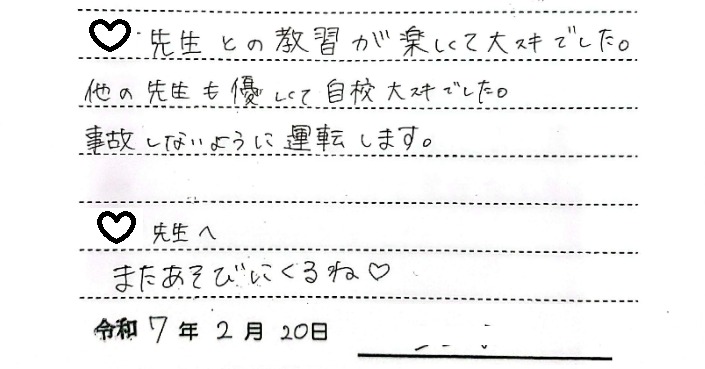 ♡先生との教習が楽しくて大スキでした。
他の先生も優しくて自校大スキでした。
事故しないように運転します。
♡先生へ
またあそびにくるね♡
令和7年2月20日